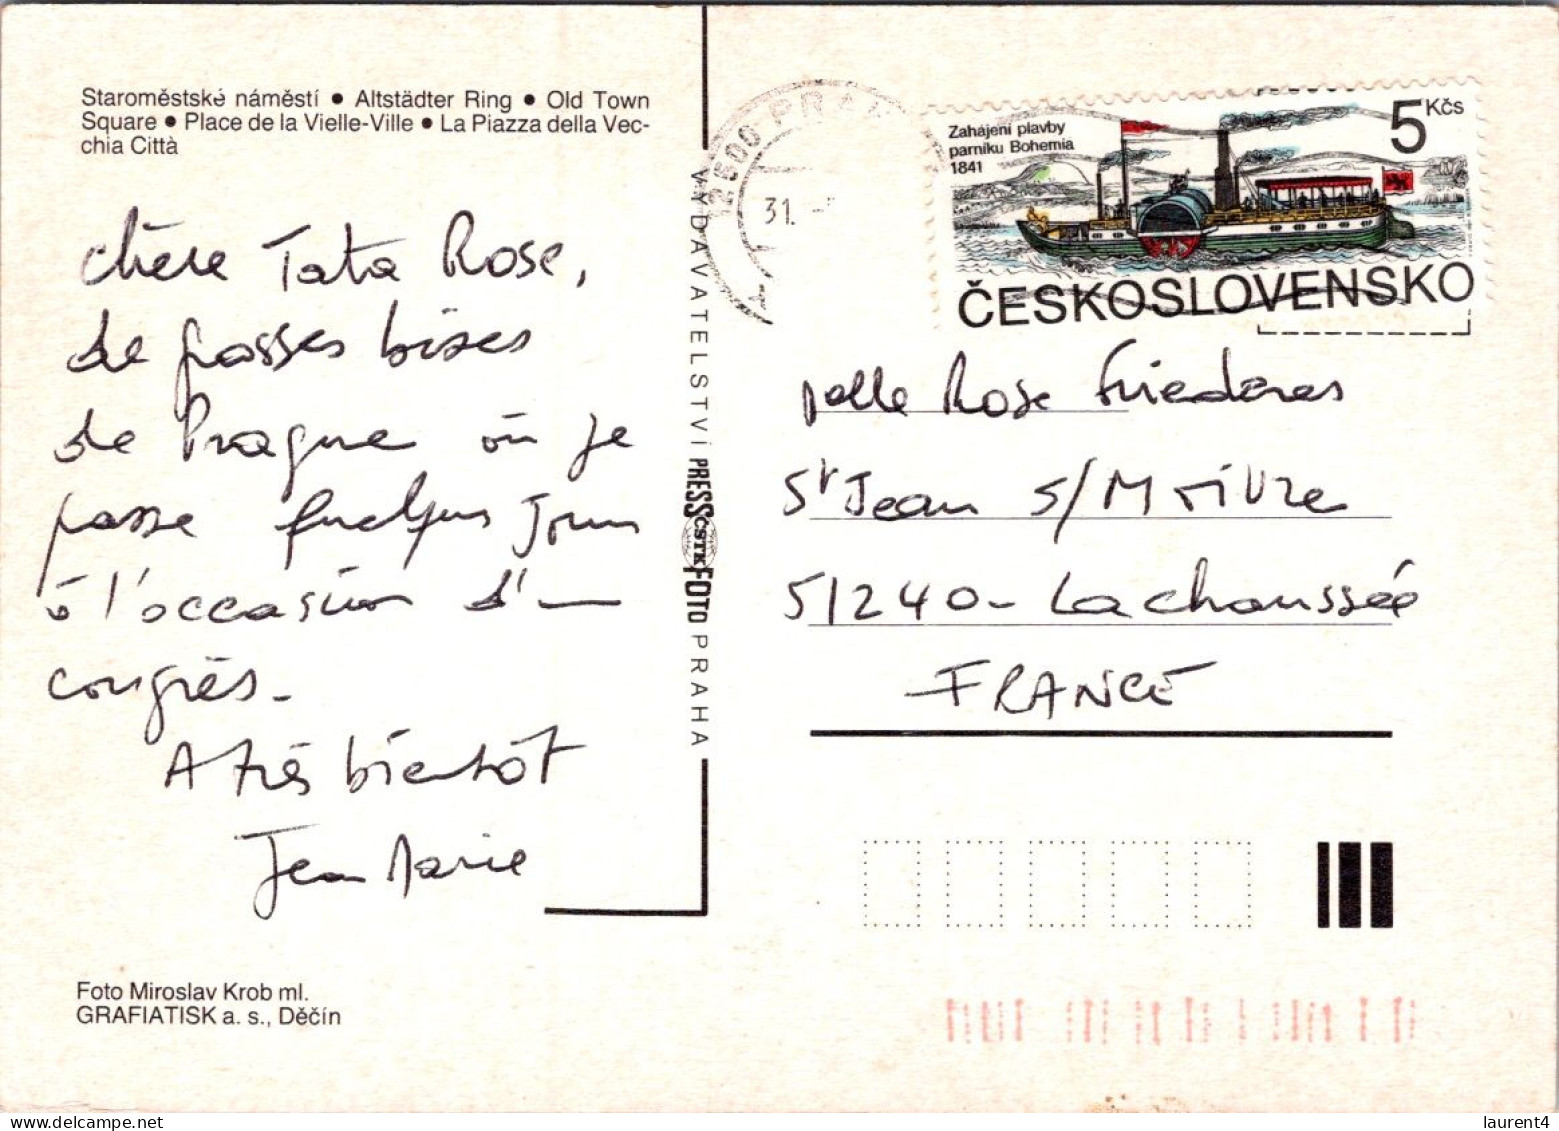 Staroměstské náměstí ● Altstädter Ring ● Old Town
Square ● Place de la Vielle-Ville ● La Piazza della Vec-
chia Città
chère Tata Rose,
de grosses bises
de Prague où je
passe quelques jours
à l'occasion d'un
congrès.
A très bientôt
Jean Marie
Foto Miroslav Krob ml.
GRAFIATISK a. s., Děčín
VYDAVATELSTVÍ PRESSFOTO PRAHA
ČSTK
PRA
31. -
Zahájení plavby
parníku Bohemia
1841
5 Kčs
ČESKOSLOVENSKO
Melle Rose
St Jean s/Moivre
51240 - La chaussée
FRANCE
laurent4